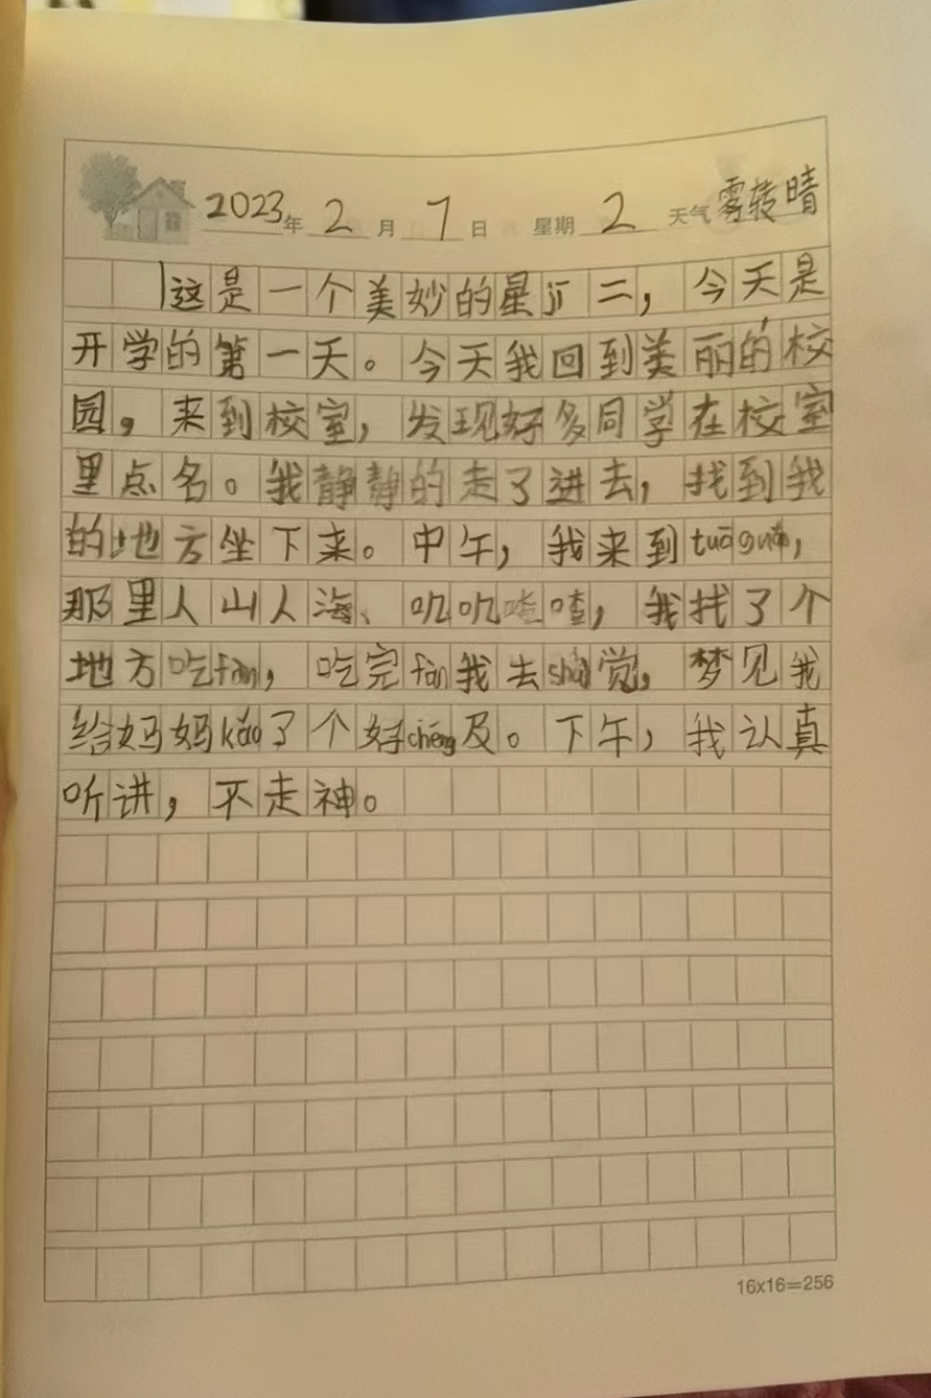 2023年2月7日 星期2 天气雾转晴
这是一个美妙的星jī二，今天是
开学的第一天。今天我回到美丽的校
园，来到校室，发现好多同学在校室
里点名。我静静的走了进去，找到我
的地方坐下来。中午，我来到tuōguǎn，
那里人山人海、叽叽喳喳，我找了个
地方吃fàn，吃完fàn我去shuì觉，梦见我
给妈妈kǎo了个好chéng及。下午，我认真
听讲，不走神。
16x16=256